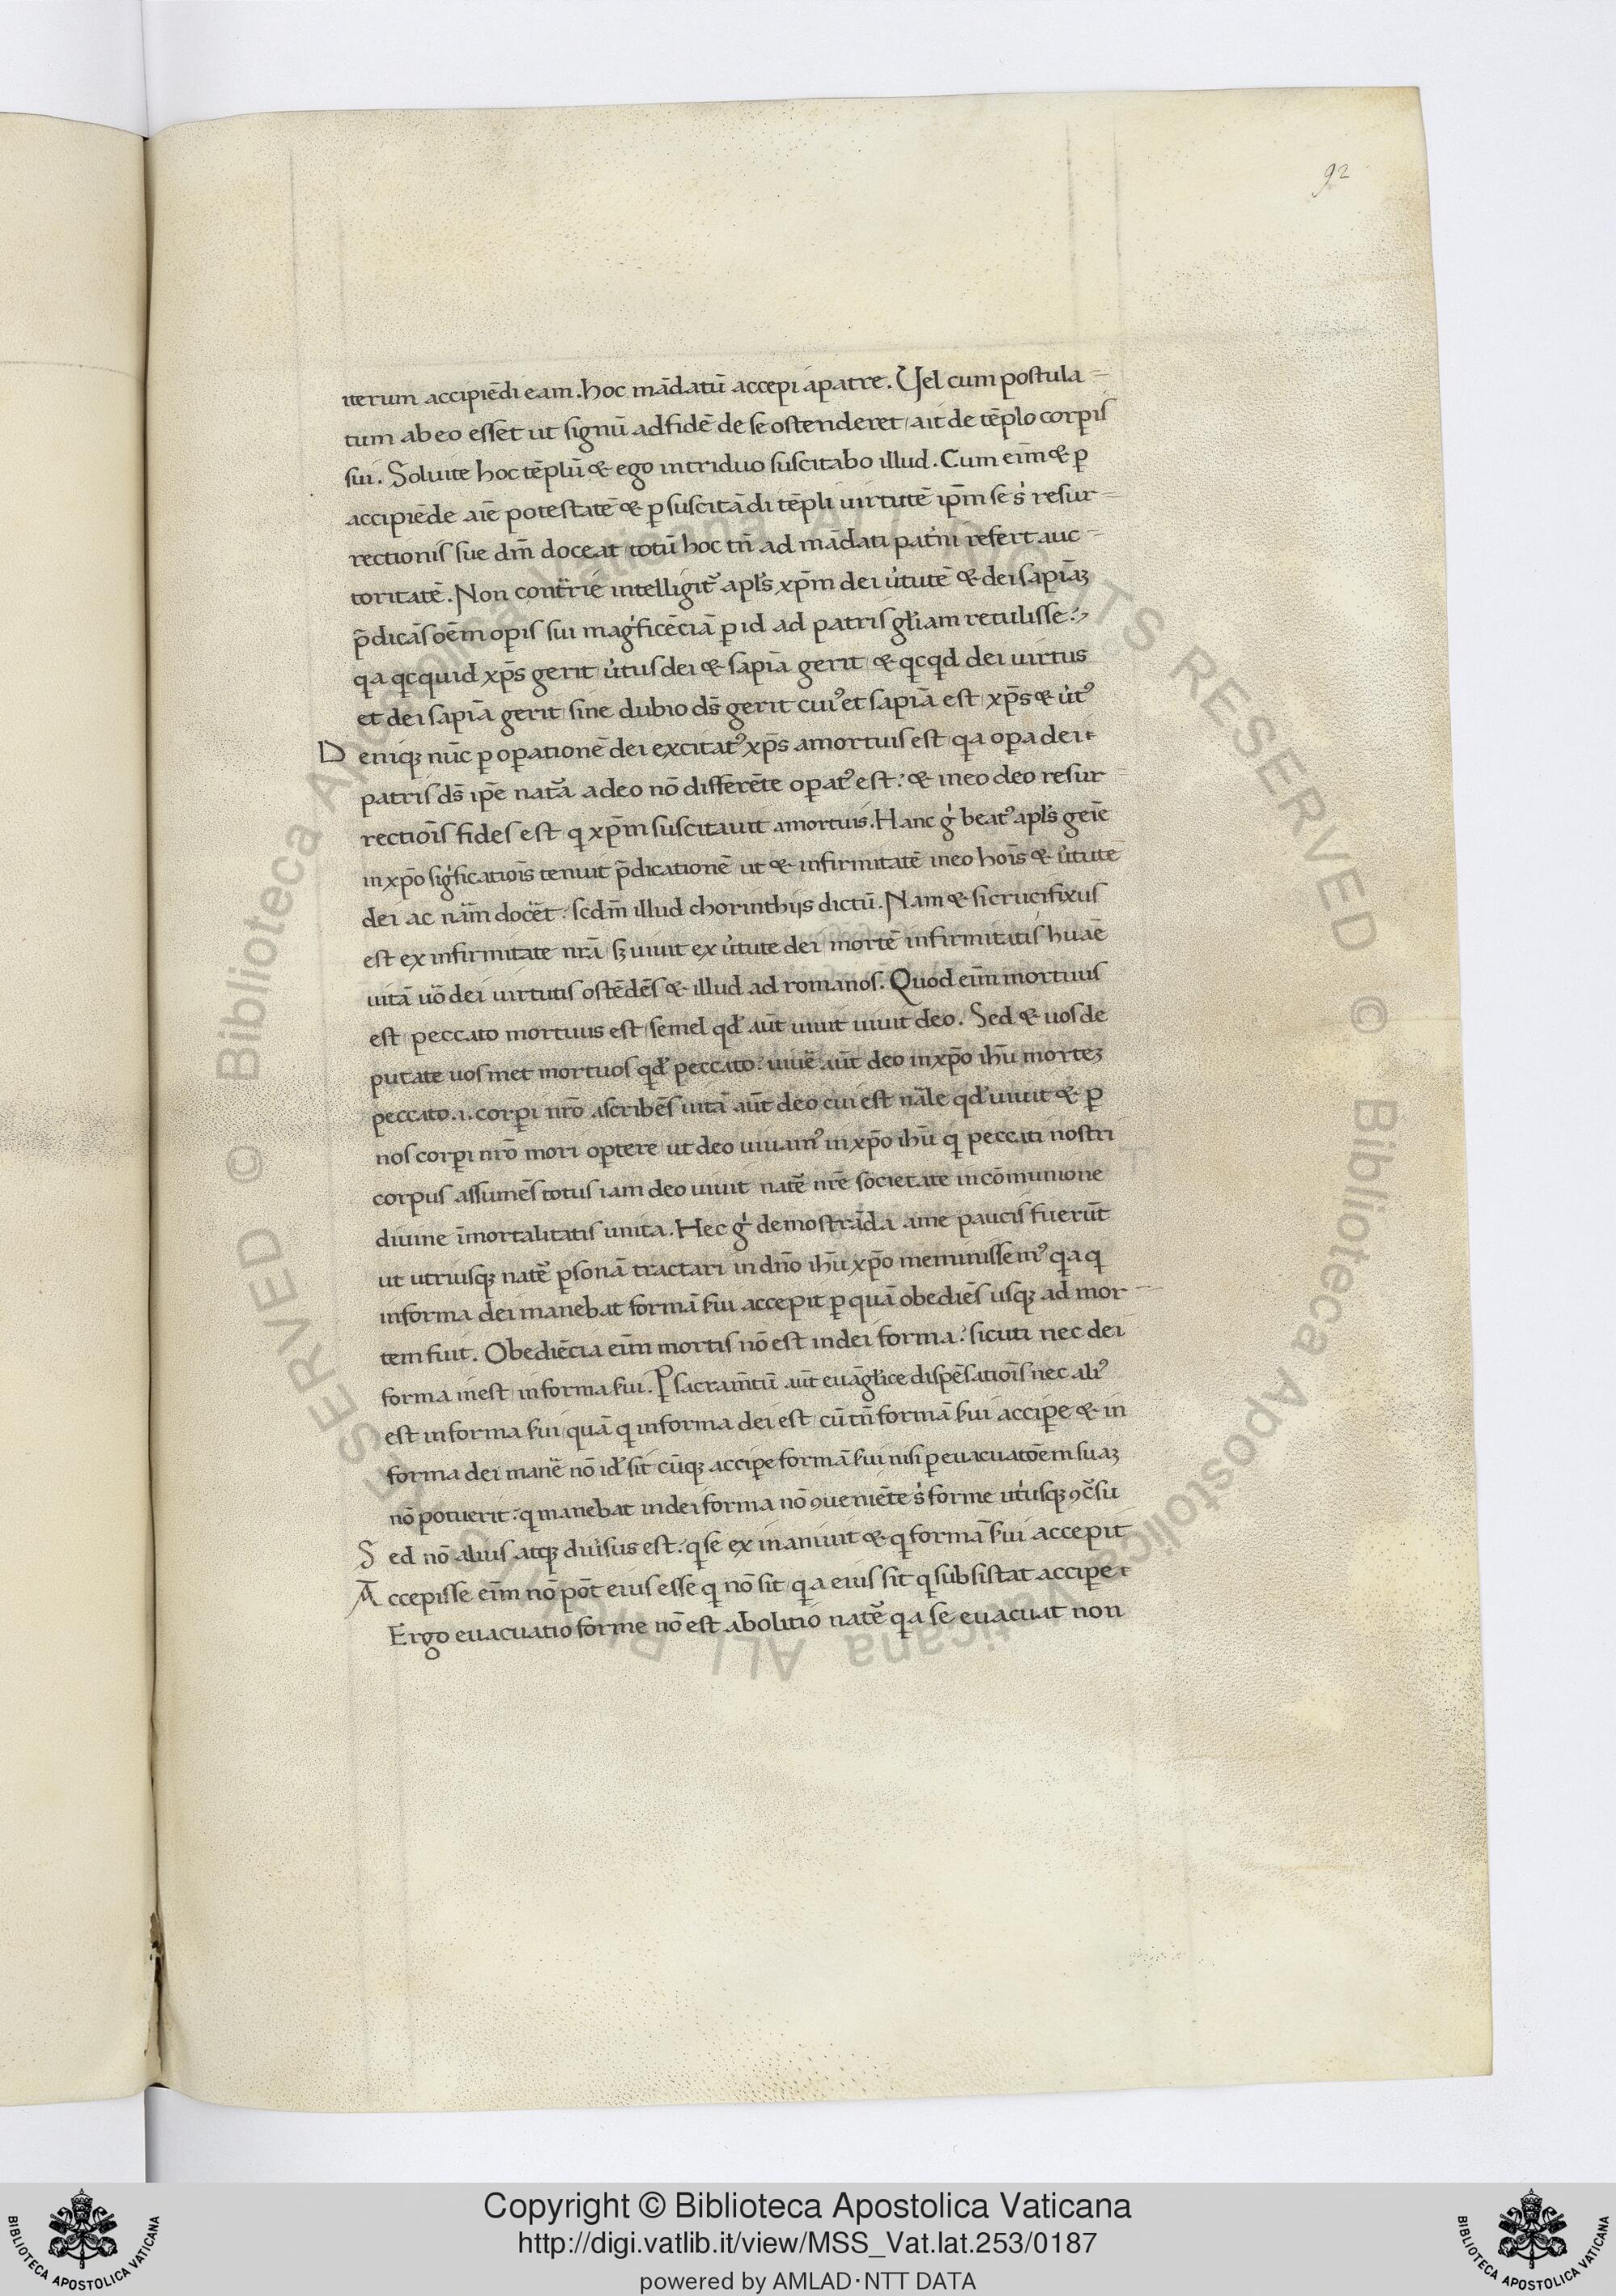 92
iterum accipiēdi eam. hoc mādatū accepi apatre. Vel cum postula-
tum ab eo esset ut signū adfidē de se ostenderet, ait de tēplo corpis
sui. Soluite hoc tēplū & ego intriduo suscitabo illud. Cum eim̄ & p̲
accipiēde aīe potestatē & p̲ suscitādi tēpli uirtutē ip̄m se s' resur-
rectionis sue dm̄ doceat totū hoc tn̄ ad mādati pat'ni refert auc-
toritatē. Non contrïe intelligit᷑ apl's xp̄m dei u'tutē & dei sapīaʒ
p̄dicās oēm opis sui mag'ficēciā p̲ id ad patris gl'iam retulisse:
qa qcquid xp̄s gerit u'tus dei & sapīa gerit & qcqd dei uirtus
et dei sapīa gerit sine dubio ds̄ gerit cui᾽ et sapīa est xp̄s & u't᾽
Deniqʒ nūc p̲ op̲ationē dei excitat᾽ xp̄s amortuis est qa op̲a dei
patris ds̄ ip̄e nat᷑ā adeo nō differēte op̲at᾽ est: & ineo deo resur-
rectioīs fides est q xp̄m suscitauit amortuis. Hanc g' beat᾽ apl's geīe
in xp̄o sig'ficatioīs tenuit p̄dicationē ut & infirmitatē ineo hoīs & u'tutē
dei ac nām docēt: scdm̄ illud chorinthijs dictū. Nam & si crucifixus
est ex infirmitate nrā sʒ uiuit ex u'tute dei mortē infirmitatis huāē
uitā uō dei uirtutis ostēdēs & illud ad romanos. Quod eim̄ mortuus
est peccato mortuus est semel qd' aūt uiuit uiuit deo. Sed & uos de
putate uos met mortuos qd' peccato: uiuē aūt deo in xp̄o ihū morteʒ
peccato .i. corpi nrō ascribēs uitā aūt deo cui est nāle qd' uiuit & p̲
nos corpi nrō mori op̲tere ut deo uiuam᾽ in xp̄o ihū q peccati nostri
corpus assumēs totus iam deo uiuit nat᷑e nrē societate in cōmunione
diuine īmortalitatis unita. Hec g' demostrāda ame paucis fuerūt
ut utriusqʒ nat᷑e p̲sonā tractari in dn̄o ihū xp̄o meminissem᾽ qa q
informa dei manebat formā s'ui accepit p̲ quā obediēs usqʒ ad mor-
tem fuit. Obediēcia eim̄ mortis nō est indei forma: sicuti nec dei
forma inest informa s'ui. P̲ sacram̄tū aūt euāgl'ice dispēsatioīs nec ali᾽
est informa s'ui quā q informa dei est cū tn̄ formā s'ui accip̲e & in
forma dei manē nō id' sit cūqʒ accip̲e formā s'ui nisi p̲ euacuatōem suaʒ
nō potuerit: q manebat indei forma nō ꝯueniēte s' forme ut'usqʒ ꝯc̄su
Sed nō alius atqʒ diuisus est: q se ex inaniuit & q formā s'ui accepit
Accepisse eim̄ nō pōt eius esse q nō sit qa eius sit q subsistat accip̲e
Ergo euacuatio forme nō est abolitio nat᷑e qa se euacuat non
Copyright © Biblioteca Apostolica Vaticana
http://digi.vatlib.it/view/MSS_Vat.lat.253/0187
powered by AMLAD·NTT DATA
BIBLIOTECA APOSTOLICA VATICANA
BIBLIOTECA APOSTOLICA VATICANA